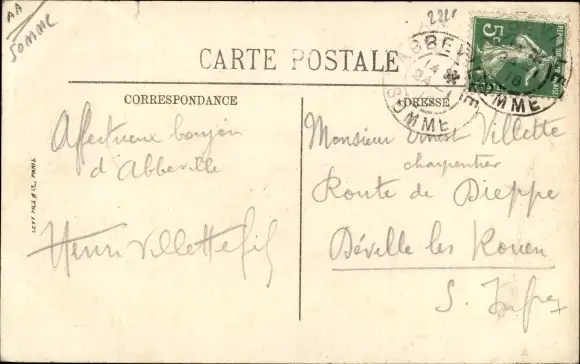 AA
SOMME
CARTE POSTALE
CORRESPONDANCE
ADRESSE
Affectueux bonjour
d'Abbeville
Henri Villette fils
Monsieur Ernest Villette
charpentier
Route de Dieppe
Déville les Rouen
S. Infre
LEVY FILS & Cie, PARIS
5c
ABBEVILLE
SOMME